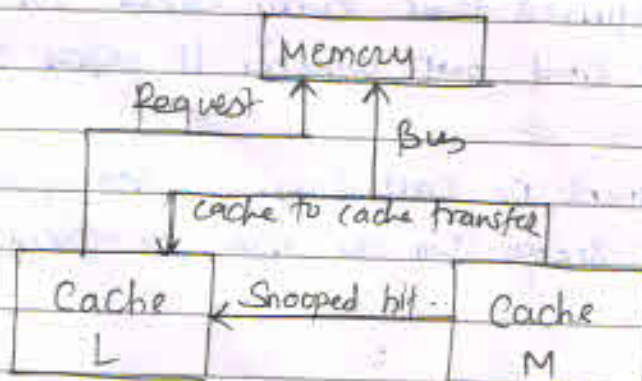 Memory
Request
Bus
cache to cache transfer
Cache
L
Snooped hit
Cache
M